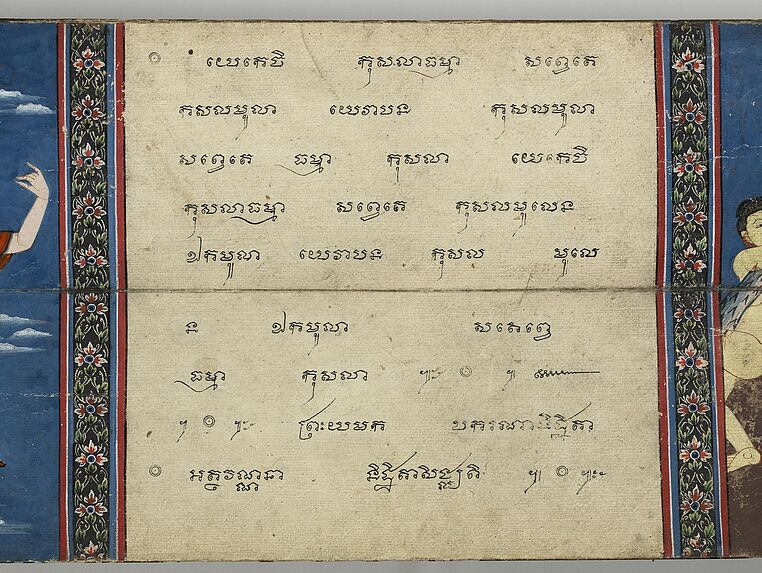 ๏ យេកេចិ កុសលាធម្មា សព្វេតេ
កុសលមូលា យេវាបន កុសលមូលា
សព្វេតេ ធម្មា កុសលា យេកេចិ
កុសលាធម្មា សព្វេតេ កុសលមូលេន
ឯកមូលា យេវាបន កុសល មូលេ
ន ឯកមូលា សព្វេតេ
ធម្មា កុសលា
ព្រះយមក បករណានិដ្ឋិតា
និដ្ឋិតា